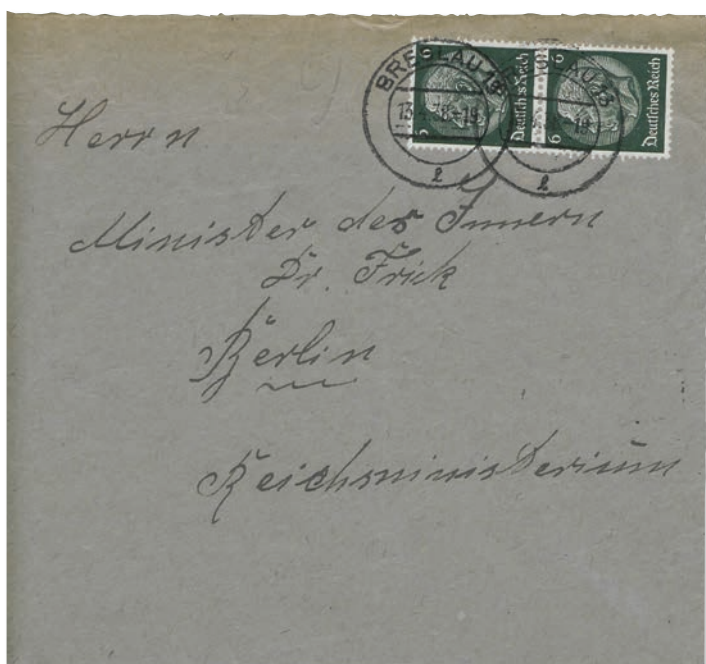 BRESLAU 13
Deutsches Reich
6
6
Deutsches Reich
6
6
l
l
Herrn
Minister des Innern
Dr. Frick
Berlin
Reichsministerium